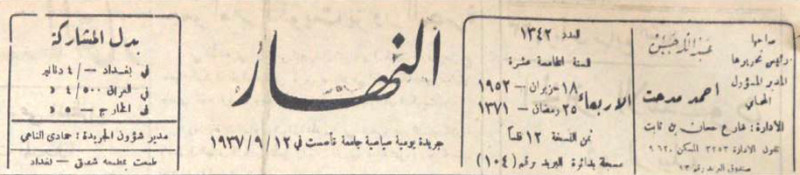 صاحبها
ورئيس تحريرها
عبدالله حسن
المدير المسؤول
المحامي
احمد مدحت
الادارة: شارع حسان بن ثابت
تلفون الادارة ٣٢٥٣ المسكن ٩٦٢٠
صندوق البريد رقم ٩٣
العدد ١٣٤٢
السنة الخامسة عشرة
الاربعاء
١٨ حزيران — ١٩٥٢
٢٥ رمضان — ١٣٧١
ثمن النسخة ١٢ فلساً
مسجلة بدائرة البريد برقم (١٠٤)
النهار
جريدة يومية سياسية جامعة تأسست في ١٢ / ٩ / ١٩٣٧
بدل المشاركة
في بغداد — / ٤ دنانير
في العراق ٤/٥٠٠ د
في الخارج — / ٥ د
مدير شؤون الجريدة: حمادي الناهي
طبعت بمطبعة شفيق — بغداد